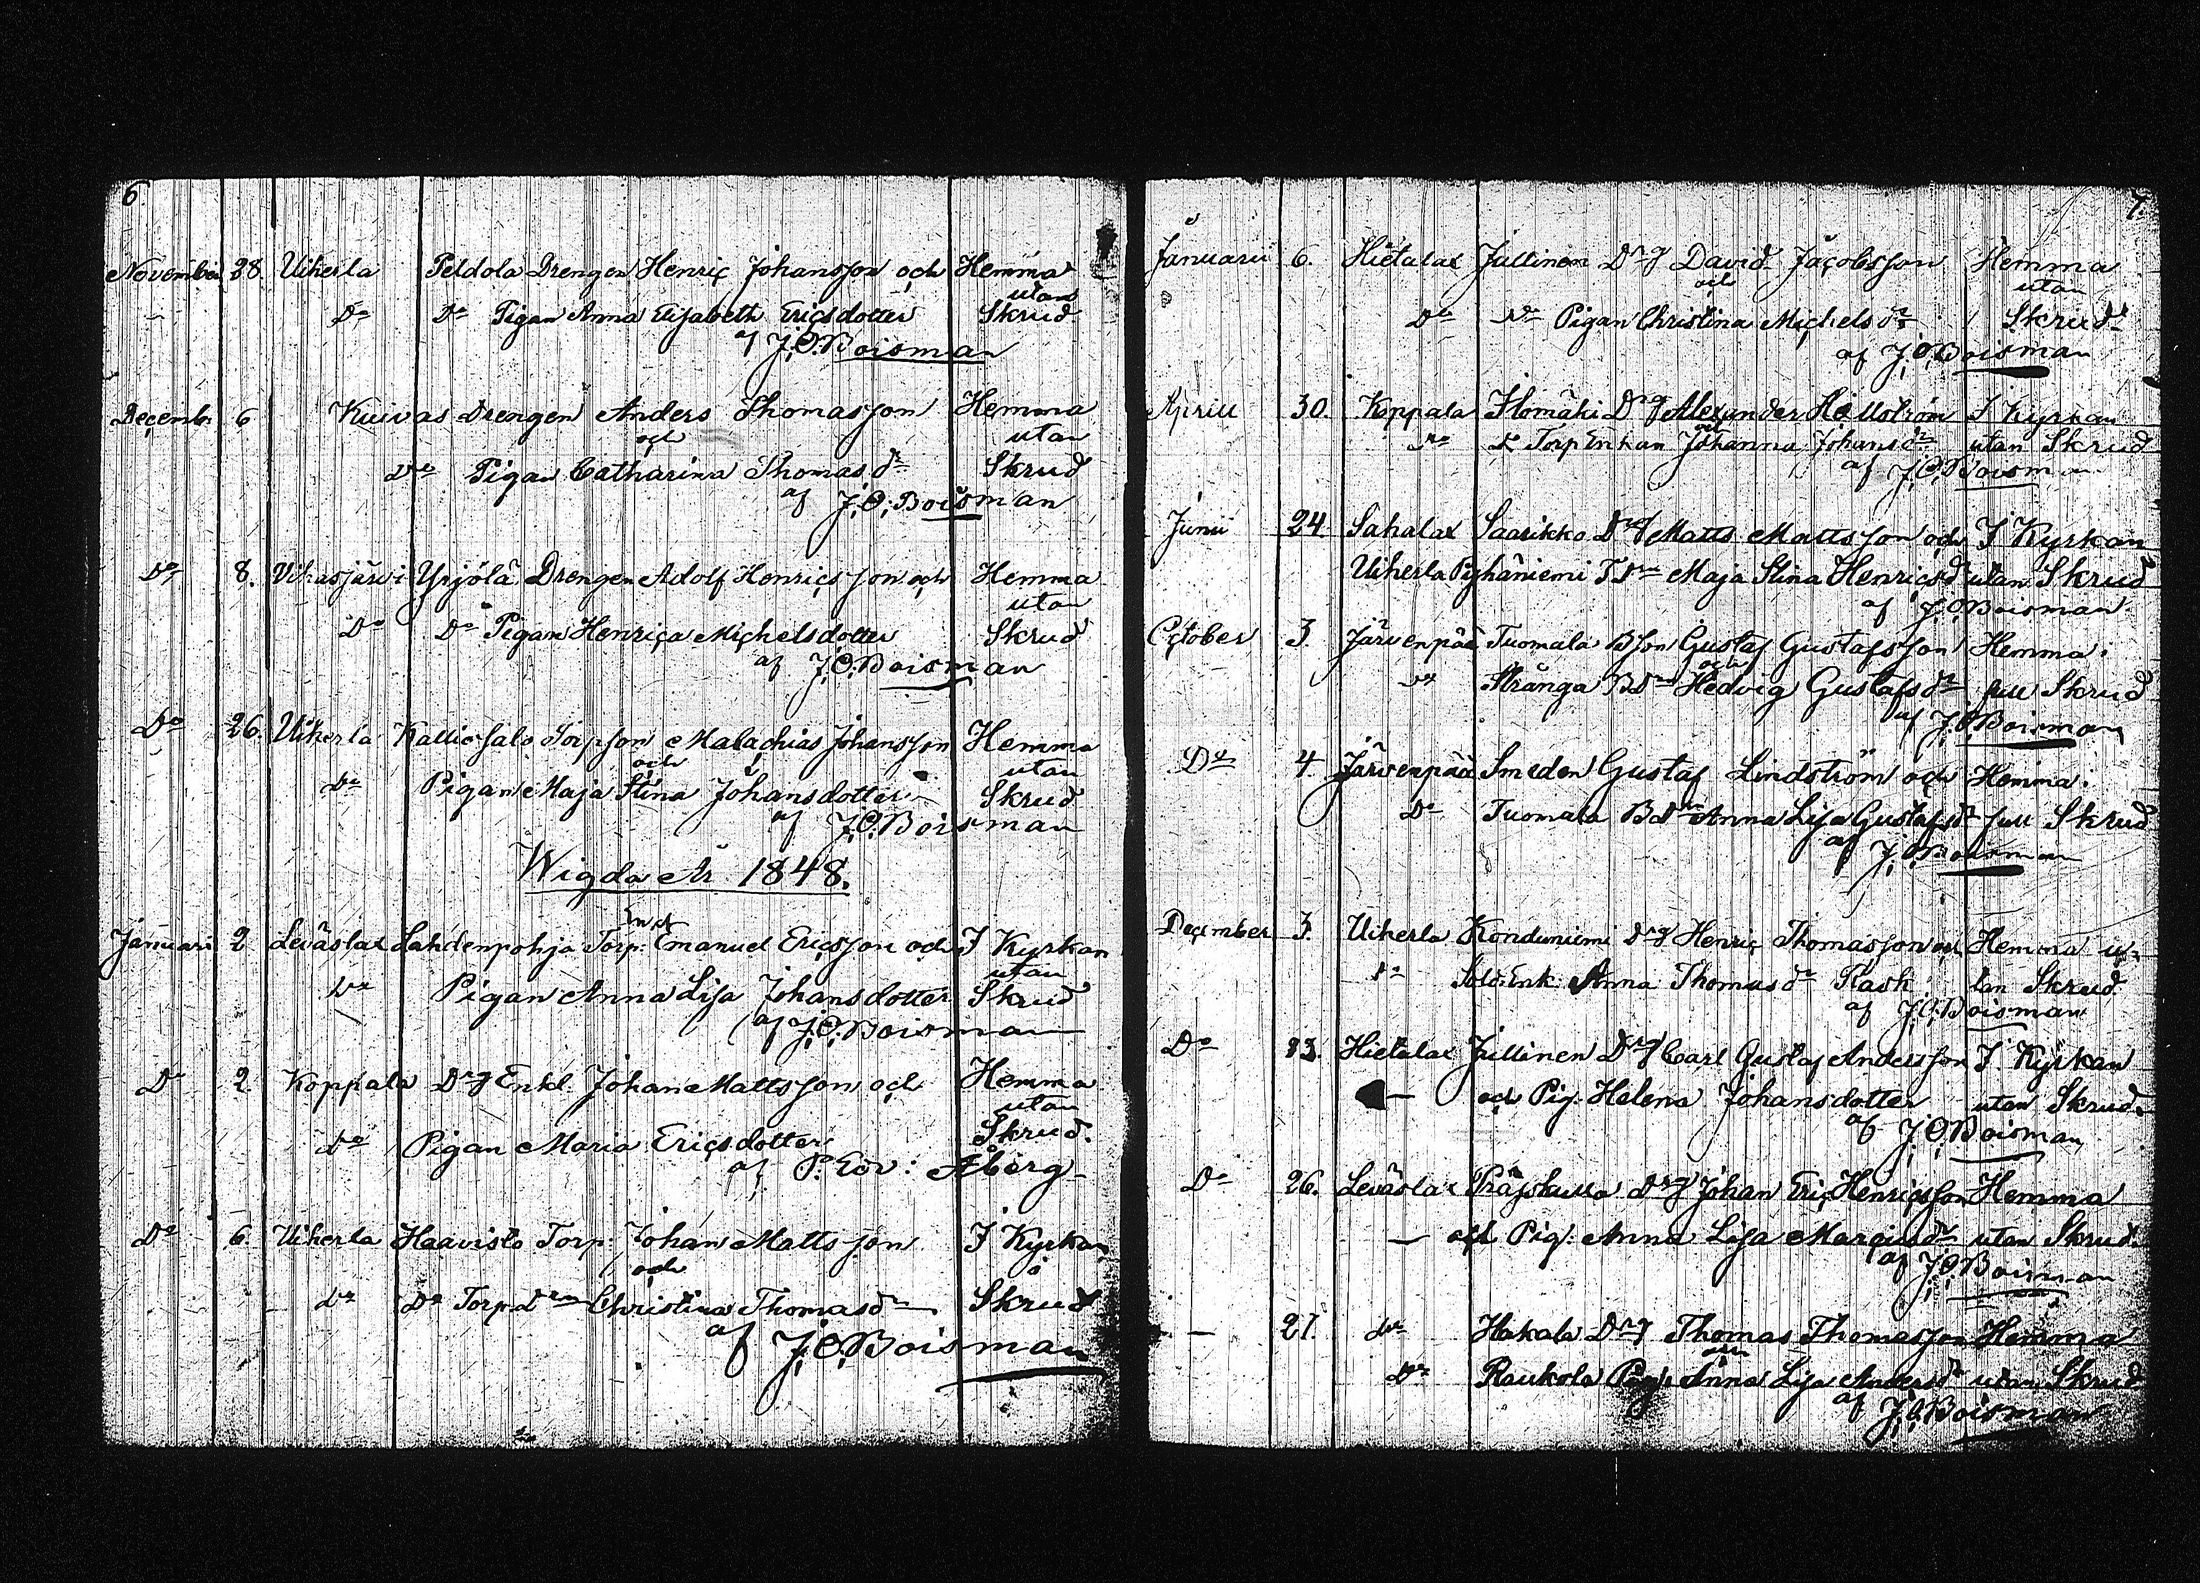 6
November 28. Uiherla Peldola Drengen Henric Johansson och Hemma
utan
Do Do Pigan Anna Elisabeth Ericsdotter Skrud
af J.O. Boisman
Decemb. 6 Kuivas Drengen Anders Thomasson Hemma
och utan
Do Pigan Catharina Thomasdr Skrud
af J.O. Boisman
Do 8. Vihasjärvi Yrjölä Drengen Adolf Henricsson och Hemma
utan
Do Do Pigan Henrica Michelsdotter Skrud
af J.O. Boisman
Do 26. Uiherla Kalliosalo Torpson Malachias Johansson Hemma
och utan
Do Pigan Maja Stina Johansdotter Skrud
af J.O. Boisman
Wigda År 1848.
Januari 2 Leväslax Lahdenpohja Torp: Emanuel Ericsson och I Kyrkan
utan
Do Pigan Anna Lisa Johansdotter Skrud
af J.O. Boisman
Do 2 Koppala Drg Enkl. Johan Mattsson och Hemma
utan
Do Pigan Maria Ericsdotter Skrud.
af P. Edv: Åberg
Do 6 Uiherla Haavisto Torp: Johan Mattsson I Kyrkan
och i
Do Do Torpdrn Christina Thomasdr Skrud
af J.O. Boisman
7.
Januarii 6. Hietalax Jullinen Drg David Jacobsson Hemma
och utan
Do Do Pigan Christina Michelsdr Skrud
af J.O. Boisman
April 30. Koppala Ilomäki Drg Alexander Hellström I Kyrkan
och
Do Torp Enkan Johanna Johansdr utan Skrud
af J.O. Boisman
Junii 24. Sahalax Saarikko Drg Matts Mattsson och I Kyrkan
Uiherla Pyhäniemi T Drn Maja Stina Henricsdr utan Skrud
af J.O. Boisman
October 3. Järvenpää Tuomala BSon Gustaf Gustafsson Hemma i
och
Do Stränga BDrn Hedvig Gustafsdr full Skrud
af J.O. Boisman
Do 4. Järvenpää Smeden Gustaf Lindström och Hemma i
Do Tuomala BDrn Anna Lisa Gustafsdr full Skrud
af J.O. Boisman
December 3. Uiherla Konduniemi Drg Henric Thomasson och Hemma u-
Do Sold:Enk: Anna Thomasdr Rask tan Skrud
af J.O. Boisman
Do Hietalax Jullinen Drg Carl Gustaf Andersson I Kyrkan
— och Pig: Helena Johansdotter utan Skrud
af J.O. Boisman
Do 26. Leväslax Drg Johan Eric Henricsson Hemma
— och Pig: Anna Lisa Marcusdr utan Skrud
af J.O. Boisman
— 27. Do Hakala Drg Thomas Thomasson Hemma
och
Do Raukola Pig: Anna Lisa Andersdr utan Skrud
af J.O. Boisman